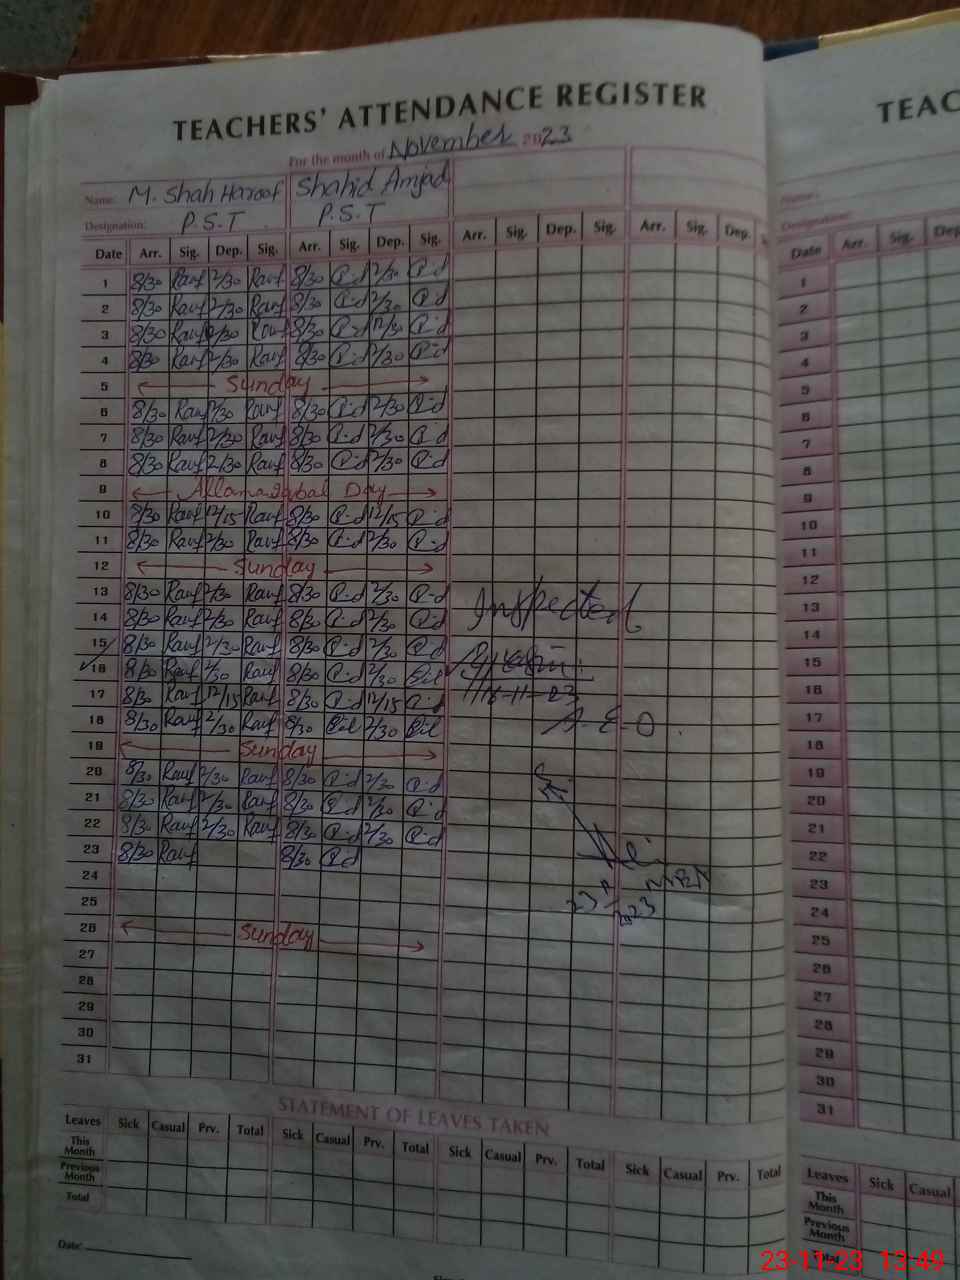 TEACHERS' ATTENDANCE REGISTER
For the month of November 2023
Name: M. Shah Haroof Shahid Amjad
Designation: P.S.T P.S.T
Date Arr. Sig. Dep. Sig. Arr. Sig. Dep. Sig. Arr. Sig. Dep. Sig. Arr. Sig. Dep.
1 8/30 Rauf 2/30 Rauf 8/30 2/30
2 8/30 Rauf 2/30 Rauf 8/30 2/30
3 8/30 Rauf 12/30 Rauf 8/30 12/30
4 8/30 Rauf 2/30 Rauf 8/30 2/30
5 Sunday
6 8/30 Rauf 2/30 Rauf 8/30 2/30
7 8/30 Rauf 2/30 Rauf 8/30 2/30
8 8/30 Rauf 2/30 Rauf 8/30 2/30
9 Allama Iqbal Day
10 8/30 Rauf 12/15 Rauf 8/30 12/15
11 8/30 Rauf 2/30 Rauf 8/30 2/30
12 Sunday
13 8/30 Rauf 2/30 Rauf 8/30 2/30
14 8/30 Rauf 2/30 Rauf 8/30 2/30 Inspected
15 8/30 Rauf 2/30 Rauf 8/30 2/30
16 8/30 Rauf 2/30 Rauf 8/30 2/30
17 8/30 Rauf 12/15 Rauf 8/30 12/15 16-11-23
18 8/30 Rauf 2/30 Rauf 8/30 2/30 A.E.O.
19 Sunday
20 8/30 Rauf 2/30 Rauf 8/30 2/30
21 8/30 Rauf 2/30 Rauf 8/30 2/30
22 8/30 Rauf 2/30 Rauf 8/30 2/30
23 8/30 Rauf 8/30
24
25 23 2023
26 Sunday
27
28
29
30
31
STATEMENT OF LEAVES TAKEN
Leaves Sick Casual Prv. Total Sick Casual Prv. Total Sick Casual Prv. Total Sick Casual Prv. Total
This Month
Previous Month
Total
Date:
TEAC
Name:
Designation:
Date Arr. Sig. Dep
1
2
3
4
5
6
7
8
9
10
11
12
13
14
15
16
17
18
19
20
21
22
23
24
25
26
27
28
29
30
31
Leaves Sick Casual
This Month
Previous Month
Total
23-11-23 13:49